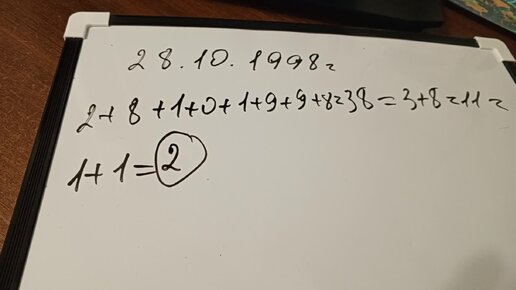 28.10.1998г
2+8+1+0+1+9+9+8=38=3+8=11=
1+1=2